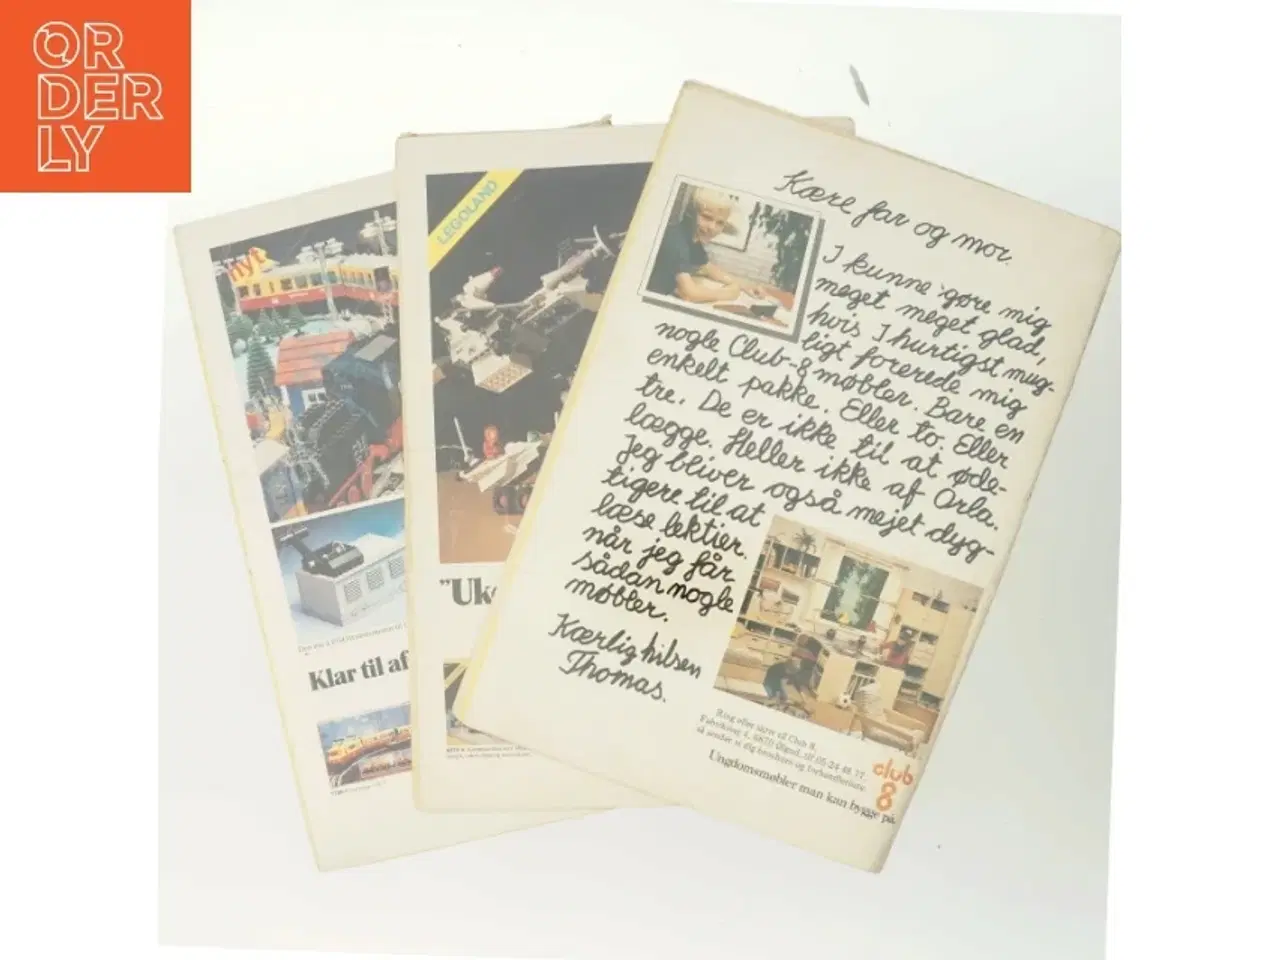 OR
DER
LY
nyt
Klar til af
LEGOLAND
"Uk
Kære far og mor.
I kunne gøre mig
meget meget glad,
hvis I hurtigst mug-
ligt forerede mig
nogle Club-8 møbler. Bare en
enkelt pakke. Eller to. Eller
tre. De er ikke til at øde-
lægge. Heller ikke af Orla.
Jeg bliver også mejet dyg-
tigere til at
læse lektier.
når jeg får
sådan nogle
møbler.
Kærlig hilsen
Thomas.
Ring eller skriv til Club 8,
Fabriksvej 4, 6870 Ølgod, tlf. 05-24 48 77,
så sender vi dig brochure og forhandlerliste.
Ungdomsmøbler man kan bygge på.
club
8